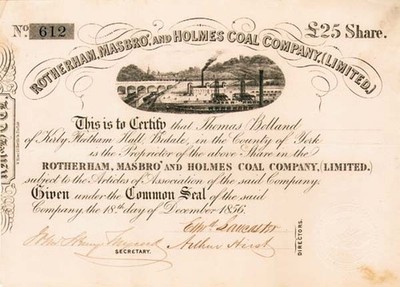 No. 612 £25 Share.
ROTHERHAM, MASBRO', AND HOLMES COAL COMPANY, (LIMITED.)
This is to Certify that Thomas Bolland
of Kirby Hall, Bedale, in the County of York
is the Proprietor of the above Share in the
ROTHERHAM, MASBRO' AND HOLMES COAL COMPANY, (LIMITED.)
subject to the Articles of Association of the said Company.
Given under the Common Seal of the said
Company, the 18th day of December 1856.
Edwd. Lancaster
John Henry
Arthur Hirst
SECRETARY.
DIRECTORS.